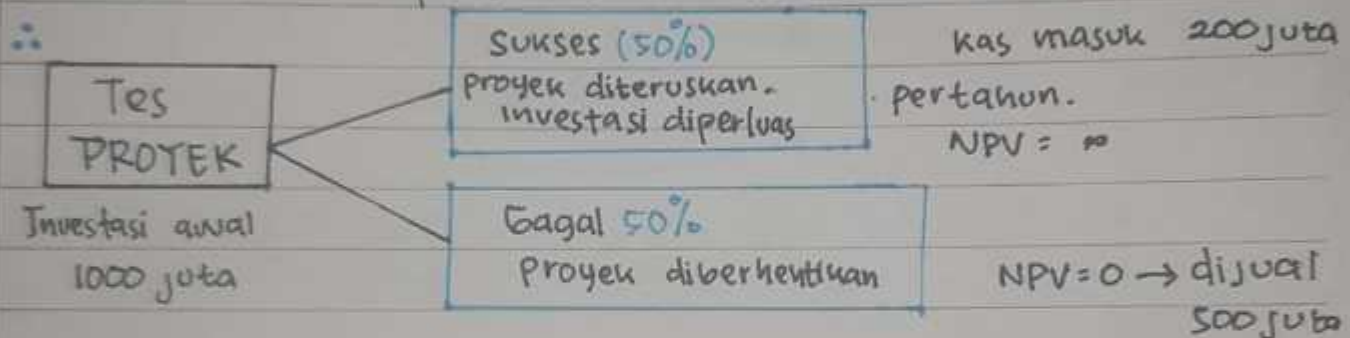 ∴
Tes
PROYEK
Investasi awal
1000 juta
Sukses (50%)
proyek diteruskan.
investasi diperluas
kas masuk 200 juta
pertahun.
NPV = ∞
Gagal 50%
Proyek diberhentikan
NPV = 0 → dijual
500 juta